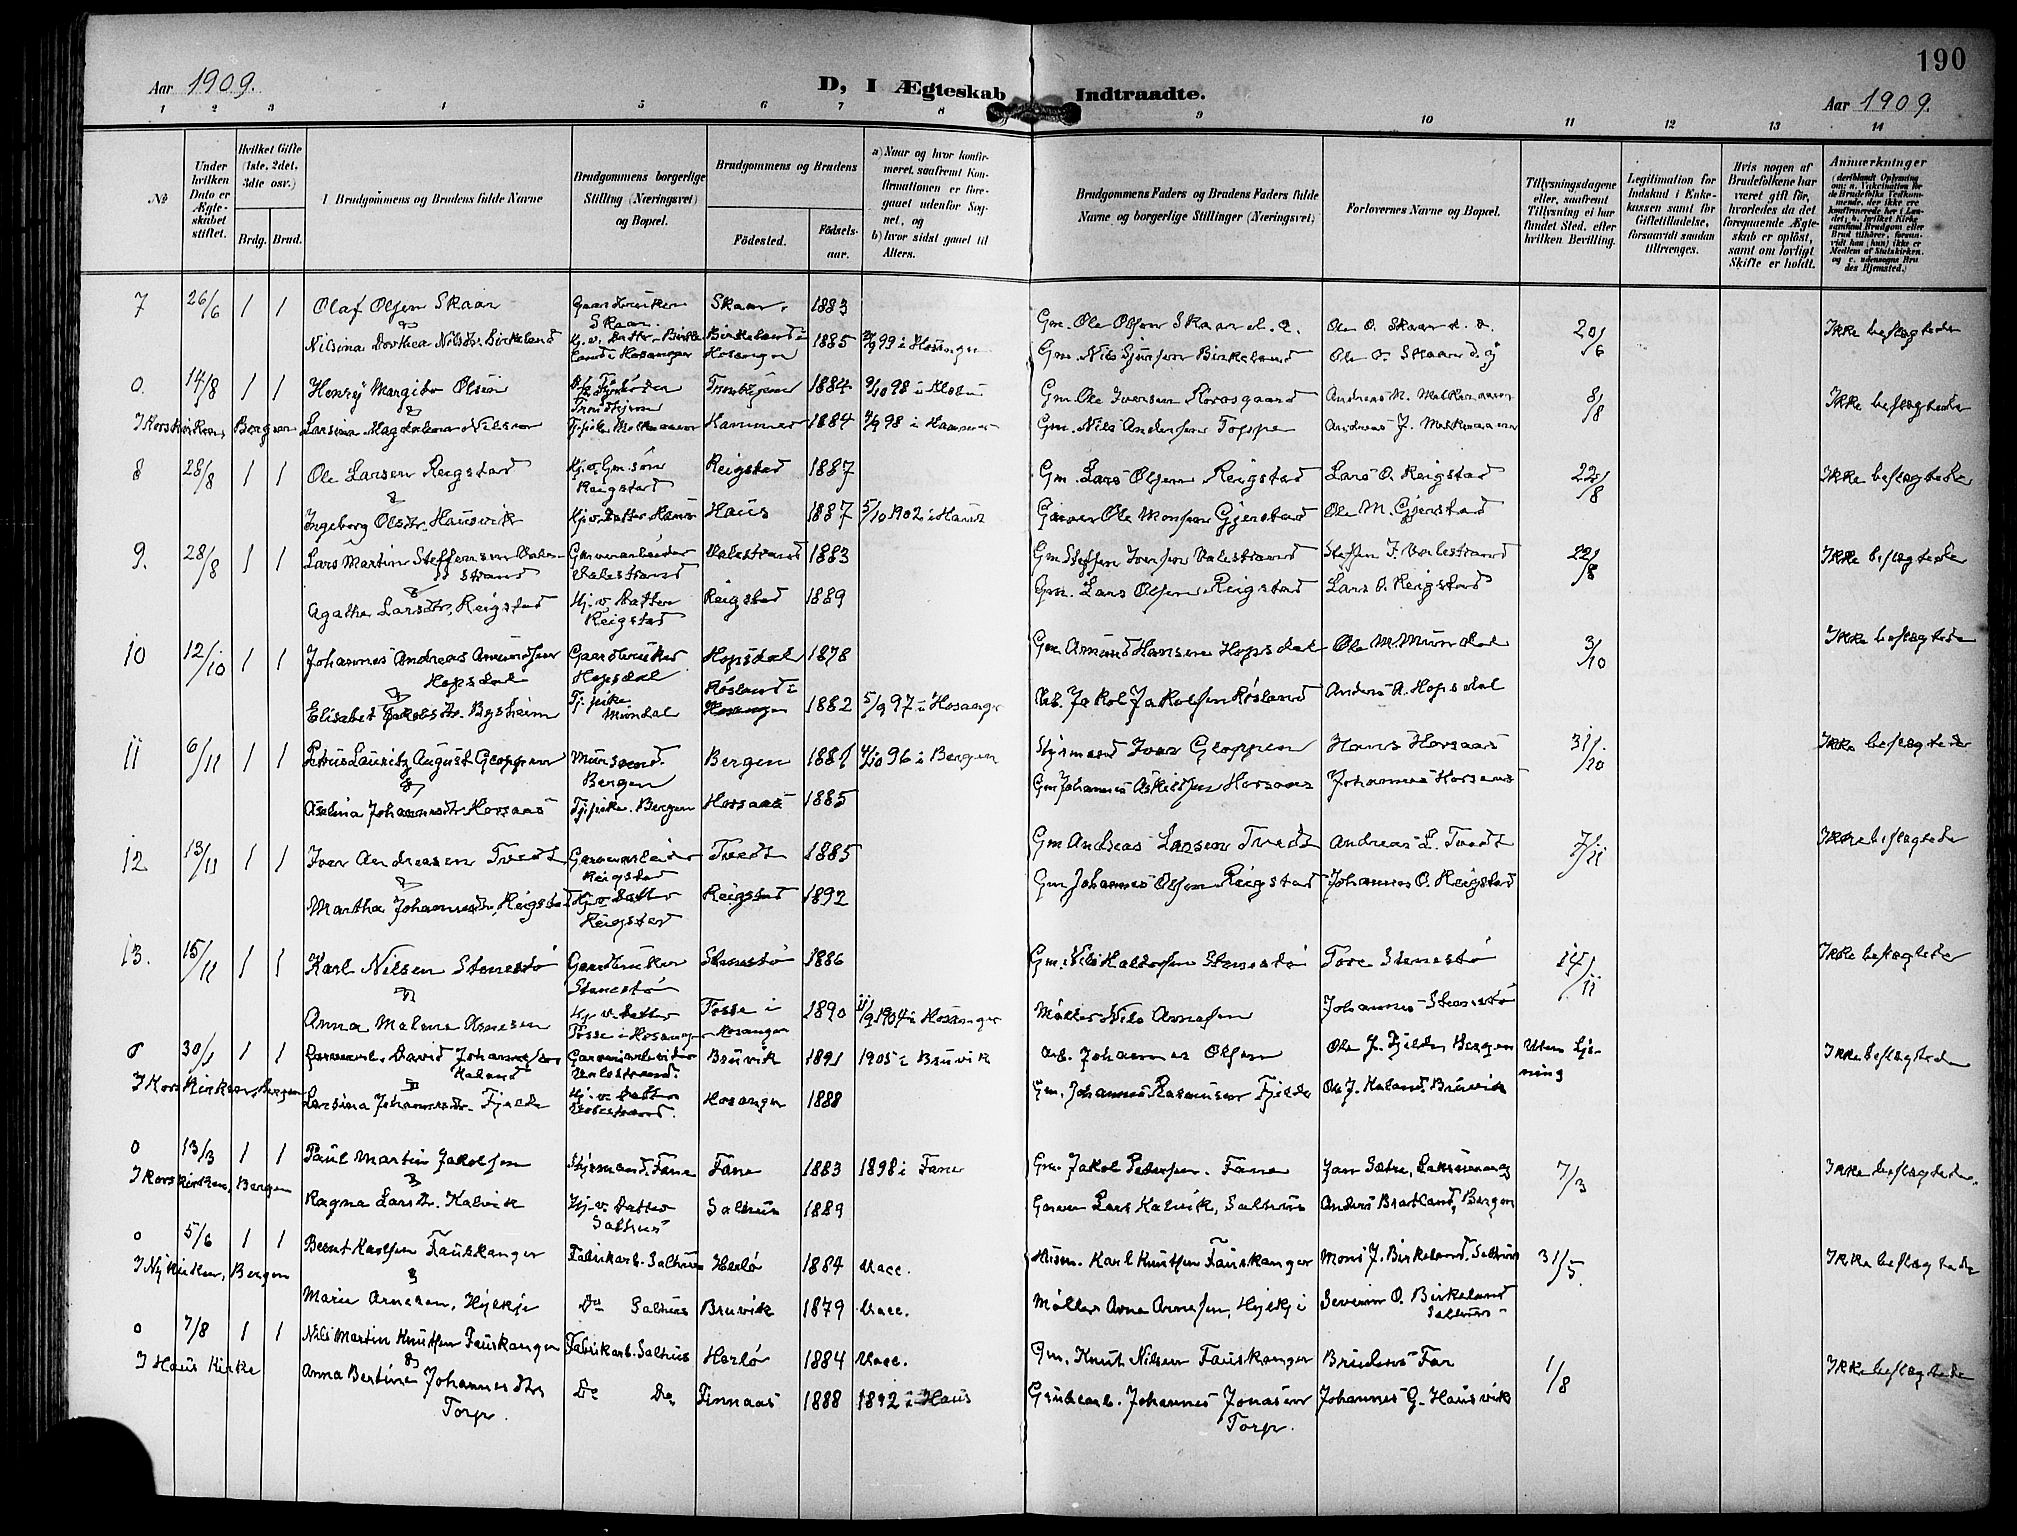 190
Aar 1909.
D, I Ægteskab Indtraadte.
Aar 1909.
1 2 3 4 5 6 7 8 9 10 11 12 13 14
No
Under hvilken Dato er Ægteskabet stiftet.
Hvilket Gifte (1ste, 2det, 3die osv.)
Brdg. Brud.
Brudgommens og Brudens fulde Navne
Brudgommens borgerlige Stilling (Næringsvei) og Bopæl.
Brudgommens og Brudens
Fødested.
Fødsels-aar.
a) Naar og hvor konfirmeret, saafremt Konfirmationen er foregaaet udenfor Sognet, og
b) hvor sidst gaaet til Alters.
Brudgommens Faders og Brudens Faders fulde Navne og borgerlige Stillinger (Næringsvei)
Forlovernes Navne og Bopæl.
Tillysningsdagene eller, saafremt Tillysning ei har fundet Sted, efter hvilken Bevilling.
Legitimation for Indskud i Enkekassen samt for Giftetilladelse, forsaavidt saadan tiltrænges.
Hvis nogen af Brudefolkene har været gift før, hvorledes da det foregaaende Ægteskab er opløst, samt om lovligt Skifte er holdt.
Anmærkninger
7 26/6 1 1 Olaf Olsen Skaar Gaardbruker Skaar. Skaar. 1883 Gm. Ole Olsen Skaar d. æ. Ole O. Skaar d. æ. 20/6 Ikke beslegtede
Nilsina Dorthea Nilsdtr. Birkeland Hj.v. Dattr. Birkeland i Hosanger Birkeland i Hosanger 1885 99 i Hosanger Gm. Nils Birkeland Ole O. Skaar d. y
0. 14/8 1 1 Henry Margido Olsen Trondhjem Trondhjem 1884 98 i Gm. Ole Iversen Andreas M. 8/8 Ikke beslegtede
I Korskirken, Bergen Larsina Magdalena Nilsen Tj.pike Hammer 1884 98 i Hammer Gm. Nils Andersen Toppe Andreas J.
8 28/8 1 1 Ole Larsen Reigstad Hj.v. Gm. søn Reigstad Reigstad 1887 Gm. Lars Olsen Reigstad Lars O. Reigstad 22/8 Ikke beslegtede
Ingeborg Olsdtr. Hausvik Hj.v. Datter Haus Haus 1887 5/10 1902 i Haus Garver Ole Monsen Gjerstad Ole M. Gjerstad
9. 28/8 1 1 Lars Martin Steffensen Valestrand Garverarbeider Valestrand Valestrand 1883 Gm. Steffen Iversen Valestrand Steffen I. Valestrand 22/8 Ikke beslegtede
Agathe Larsdtr. Reigstad Hj.v. Datter Reigstad Reigstad 1889 Gm. Lars Olsen Reigstad Lars O. Reigstad
10 12/10 1 1 Johannes Andreas Amundsen Hopsdal Gaardbruker Hopsdal Hopsdal 1878 Gm. Amund Hansen Hopsdal Ole M. Mundal 3/10 Ikke beslegtede
Elisabet Jakobsdtr. Bysheim Tj.pike Mundal Røsland i Hosanger 1882 5/9 97 i Hosanger Jakob Jakobsen Røsland Anders A. Hopsdal
11 6/11 1 1 Petrus Lauritz August Gloppen Mursvend. Bergen Bergen 1881 4/10 96 i Bergen Styrmand Ivar Gloppen Hans Horsaas 31/10 Ikke beslegtede
Johannesdtr. Horsaas Tj.pike. Bergen Horsaas 1885 Gm. Johannes Askildsen Horsaas Johannes Horsaas
12 13/11 1 1 Iver Andreasen Tvedt Garverarbeider Reigstad Tvedt 1885 Gm. Andreas Larsen Tvedt Andreas L. Tvedt 7/11 Ikke beslegtede
Martha Johannesdtr. Reigstad Hj.v. Datter Reigstad Reigstad 1892 Gm. Johannes Olsen Reigstad Johannes O. Reigstad
13. 15/11 1 1 Karl Nilsen Stenestø Gaardbruker Stenestø Stenestø 1886 Gm. Nils Haldorsen Stenestø Tore Stenestø 14/11 Ikke beslegtede
Anna Malene Arnesen Hj.v. Datter Fosse i Hosanger Fosse i Hosanger 1890 11/9 1904 i Hosanger Møller Nils Arnesen Johannes Stenestø
0 30/1 1 1 David Johannessen Haland Garveriarbeider Valestrand. Bruvik 1891 1905 i Bruvik Arb. Johannes Olsen Ole J. Fjelde, Bergen Uten Ikke beslegtede
I Korskirken, Bergen Larsina Johannesdtr. Fjelde Hj.v. Datter Valestrand. Hosanger 1888 Gm. Johannes Rasmussen Fjelde Ole J. Haland, Bruvik
0 13/3 1 1 Paul Martin Jakobsen Styrmand, Fane Fane 1883 1898 i Fane Gm. Jakob Pedersen. Fane Jan Sætre, 7/3 Ikke beslegtede.
I Korskirken, Bergen Ragna Larsdtr. Kalvik Hj.v. Datter Salhus Salhus 1889 Garver Lars Kalvik, Salhus Anders Bratland, Bergen
0 5/6 1 1 Bernt Karlsen Fauskanger Fabrikarb. Salhus Herlø 1884 Vacc. Husm. Karl Knutsen Fauskanger Mons J. Birkeland, Salhus 31/5. Ikke beslegtede
I Nykirken, Bergen Marie Arnesen, Hylkje Do Salhus Bruvik 1879 Vacc. Møller Arne Arnesen, Hylkje Severin O. Birkeland Salhus
0 7/8 1 1 Nils Martin Knutsen Fauskanger Fabrikarb. Salhus Herlø 1884 Vacc. Gm. Knut Nilsen Fauskanger Brudens Far 1/8 Ikke beslegtede
I Haus Kirke Anna Bertine Johannesdtr. Torp. Do Do Finnaas 1888 1892 i Haus Grubearb. Johannes Jonasen Torp. Johannes G. Hausvik